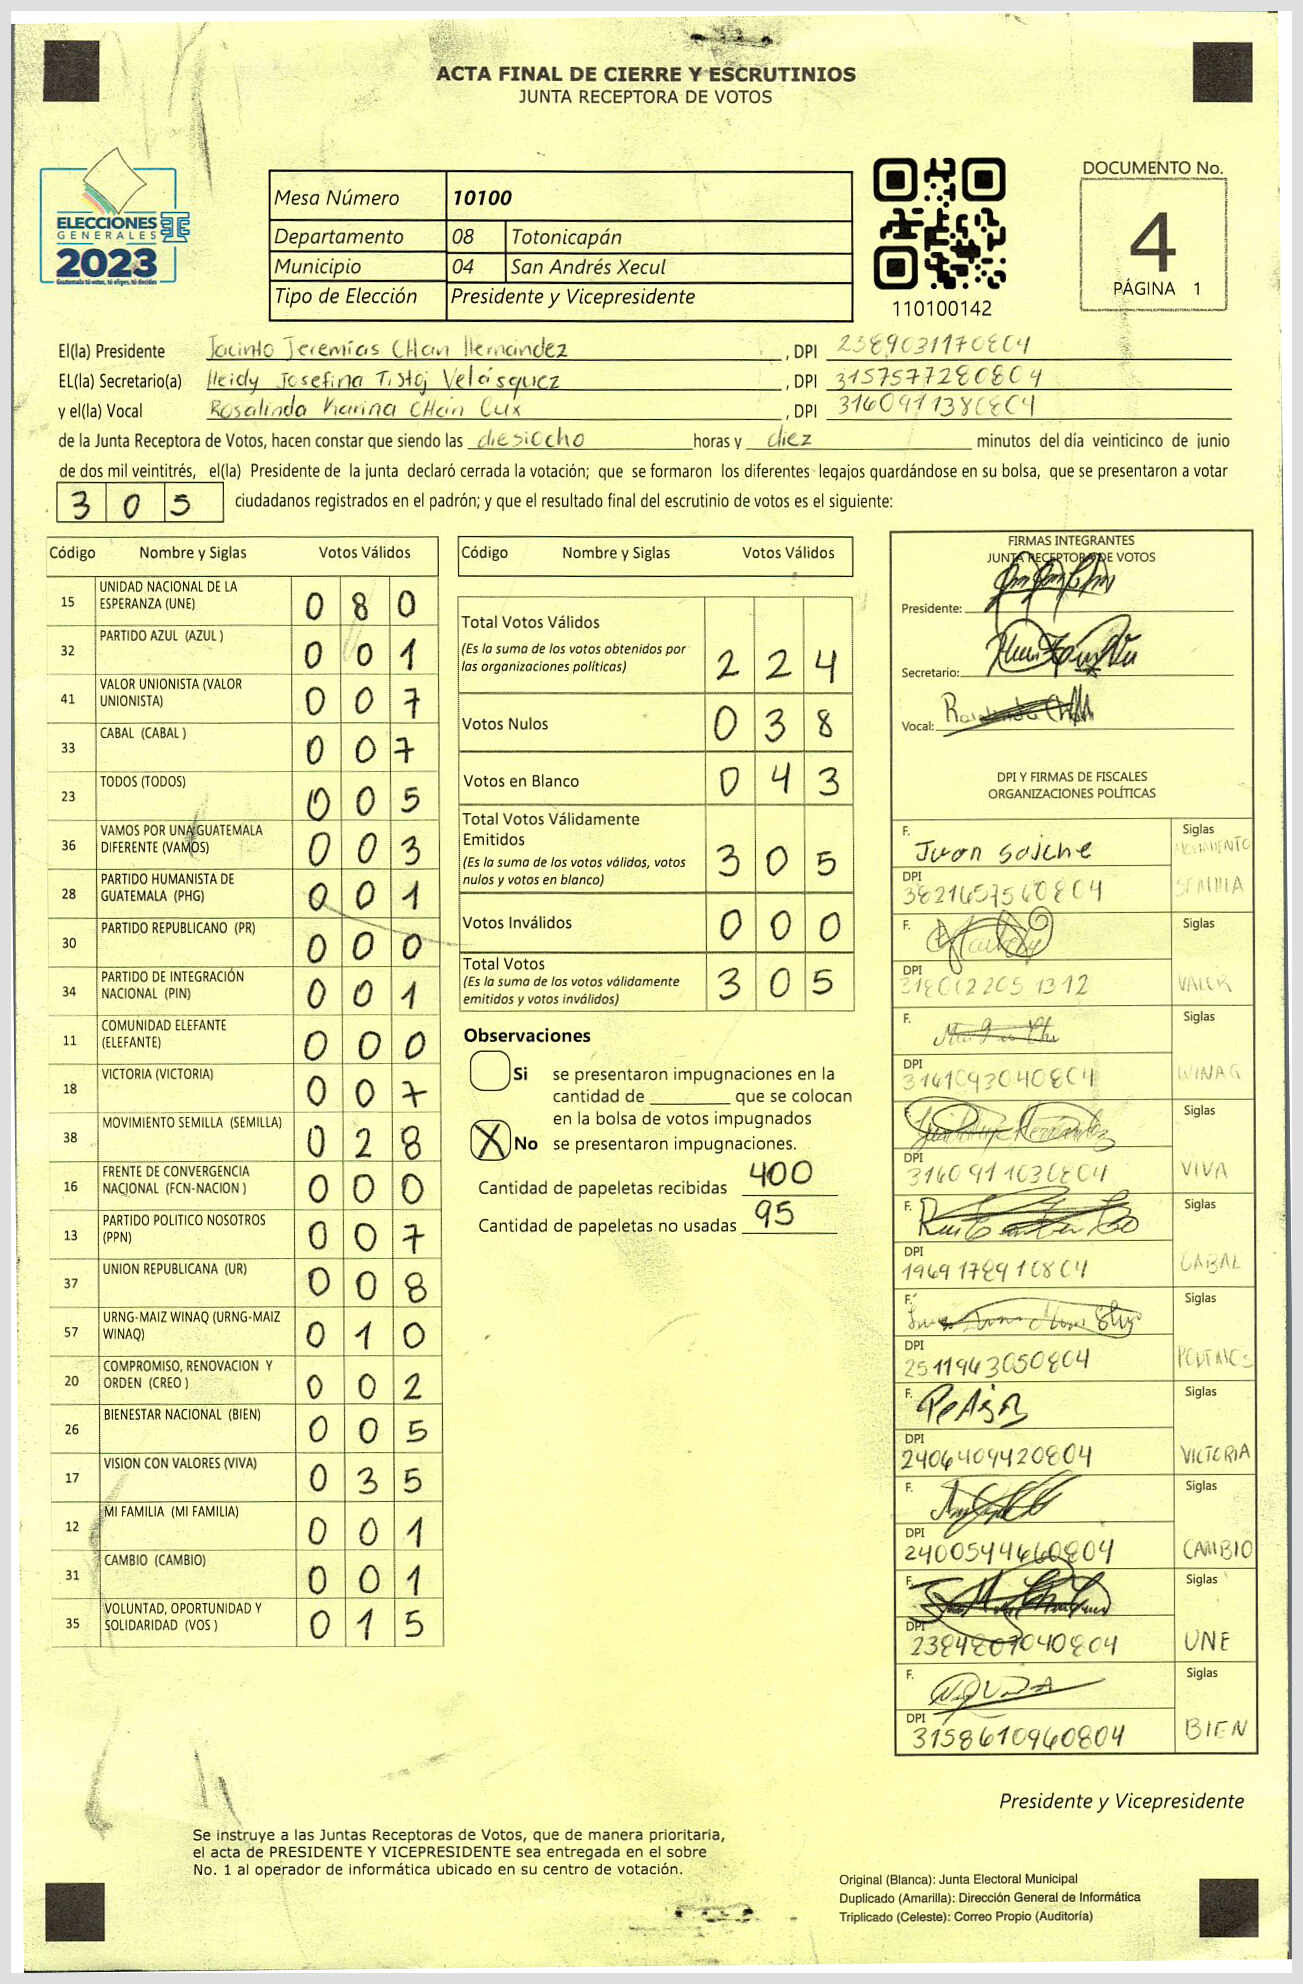 ACTA FINAL DE CIERRE Y ESCRUTINIOS
JUNTA RECEPTORA DE VOTOS
ELECCIONES
GENERALES
2023
Guatemala tú votas, tú eliges, tú decides
Mesa Número 10100
Departamento 08 Totonicapán
Municipio 04 San Andrés Xecul
Tipo de Elección Presidente y Vicepresidente
110100142
DOCUMENTO No.
4
PÁGINA 1
El(la) Presidente Jacinto Jeremías CHan Hernández , DPI 2389031170804
EL(la) Secretario(a) Heidy Josefina Tistoj Velásquez , DPI 3157577280804
y el(la) Vocal Rosalinda Karina CHán Cux , DPI 3160911380804
de la Junta Receptora de Votos, hacen constar que siendo las diesiocho horas y diez minutos del día veinticinco de junio
de dos mil veintitrés, el(la) Presidente de la junta declaró cerrada la votación; que se formaron los diferentes legajos quardándose en su bolsa, que se presentaron a votar
305 ciudadanos registrados en el padrón; y que el resultado final del escrutinio de votos es el siguiente:
Código Nombre y Siglas Votos Válidos
15 UNIDAD NACIONAL DE LA ESPERANZA (UNE) 080
32 PARTIDO AZUL (AZUL ) 001
41 VALOR UNIONISTA (VALOR UNIONISTA) 007
33 CABAL (CABAL ) 007
23 TODOS (TODOS) 005
36 VAMOS POR UNA GUATEMALA DIFERENTE (VAMOS) 003
28 PARTIDO HUMANISTA DE GUATEMALA (PHG) 001
30 PARTIDO REPUBLICANO (PR) 000
34 PARTIDO DE INTEGRACIÓN NACIONAL (PIN) 001
11 COMUNIDAD ELEFANTE (ELEFANTE) 000
18 VICTORIA (VICTORIA) 007
38 MOVIMIENTO SEMILLA (SEMILLA) 028
16 FRENTE DE CONVERGENCIA NACIONAL (FCN-NACION ) 000
13 PARTIDO POLITICO NOSOTROS (PPN) 007
37 UNION REPUBLICANA (UR) 008
57 URNG-MAIZ WINAQ (URNG-MAIZ WINAQ) 010
20 COMPROMISO, RENOVACION Y ORDEN (CREO ) 002
26 BIENESTAR NACIONAL (BIEN) 005
17 VISION CON VALORES (VIVA) 035
12 MI FAMILIA (MI FAMILIA) 001
31 CAMBIO (CAMBIO) 001
35 VOLUNTAD, OPORTUNIDAD Y SOLIDARIDAD (VOS ) 015
Código Nombre y Siglas Votos Válidos
Total Votos Válidos 224
(Es la suma de los votos obtenidos por
las organizaciones políticas)
Votos Nulos 038
Votos en Blanco 043
Total Votos Válidamente
Emitidos 305
(Es la suma de los votos válidos, votos
nulos y votos en blanco)
Votos Inválidos 000
Total Votos 305
(Es la suma de los votos válidamente
emitidos y votos inválidos)
Observaciones
Si se presentaron impugnaciones en la
cantidad de ________ que se colocan
en la bolsa de votos impugnados
X No se presentaron impugnaciones.
Cantidad de papeletas recibidas 400
Cantidad de papeletas no usadas 95
FIRMAS INTEGRANTES
JUNTA RECEPTORA DE VOTOS
Presidente:
Secretario:
Vocal:
DPI Y FIRMAS DE FISCALES
ORGANIZACIONES POLÍTICAS
F. Juan Soiche Siglas MOVIMIENTO
DPI 3821657560804 SEMILLA
F. Siglas
DPI 3180122051312 VALOR
F. Siglas
DPI 3161093040804 WINAQ
F. Siglas
DPI 3160911030804 VIVA
F. Siglas
DPI 1969178910804 CABAL
F. Siglas
DPI 2511963050804 PODEMOS
F. Siglas
DPI 2406409420804 VICTORIA
F. Siglas
DPI 2400544660804 CAMBIO
F. Siglas
DPI 2384807040804 UNE
F. Siglas
DPI 3158610960804 BIEN
Presidente y Vicepresidente
Se instruye a las Juntas Receptoras de Votos, que de manera prioritaria,
el acta de PRESIDENTE Y VICEPRESIDENTE sea entregada en el sobre
No. 1 al operador de informática ubicado en su centro de votación.
Original (Blanca): Junta Electoral Municipal
Duplicado (Amarilla): Dirección General de Informática
Triplicado (Celeste): Correo Propio (Auditoría)